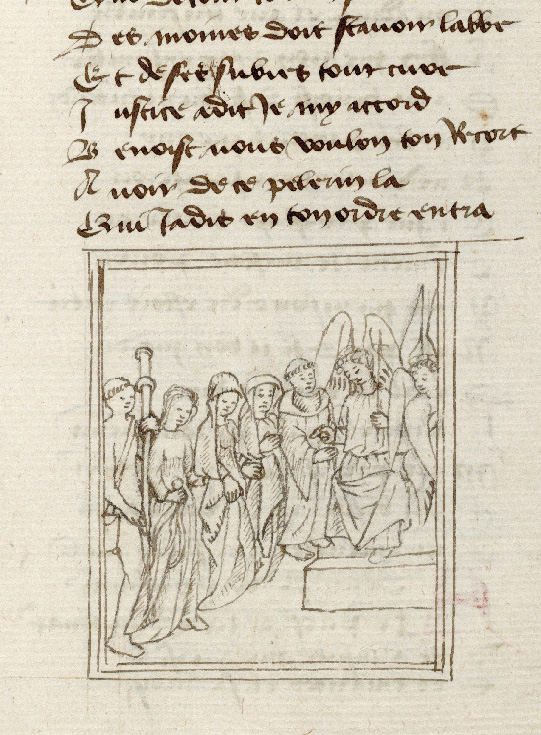 Des moines doit scavoir labbe
Et de ses subies tout cuer
Justice a dit Je my accord
Benoist nous voulon ton Recort
Auoir de ce pelerin la
Qui Jadis en ton ordre entra